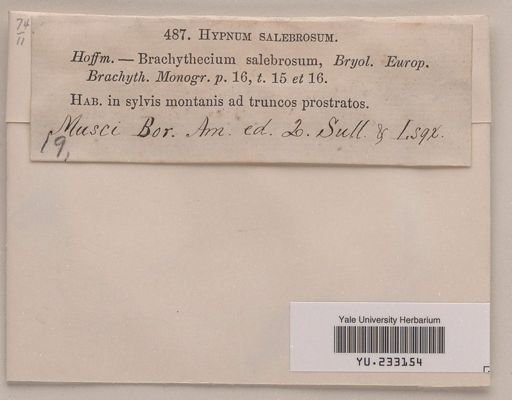 74
11
487. HYPNUM SALEBROSUM.
Hoffm. — Brachythecium salebrosum, Bryol. Europ.
Brachyth. Monogr. p. 16, t. 15 et 16.
HAB. in sylvis montanis ad truncos prostratos.
Musci Bor. Am. ed. 2. Sull. & Lsqx.
19,
Yale University Herbarium
YU.233154